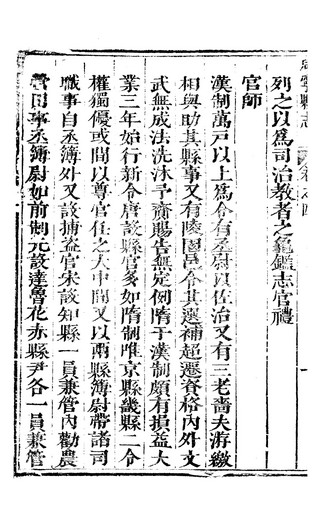 列之以爲司治教者之龜鑑志官禮
官師
漢制萬戸以上爲令有丞尉以佐治又有三老嗇夫游繳
相與助其縣事又有陵園邑令其選補超遷資格內外文
武無成法洗沐予賚賜告無定例隋于漢制頗有損益大
業三年始行新令唐設縣官多如隋制唯京縣畿縣二令
權獨優或間以尊官任之大中間又以兩縣簿尉帶諸司
職事自丞簿外又設攝益官宋設知縣一員兼管內勸農
營田事丞簿尉如前制元設達魯花赤縣尹各一員兼管